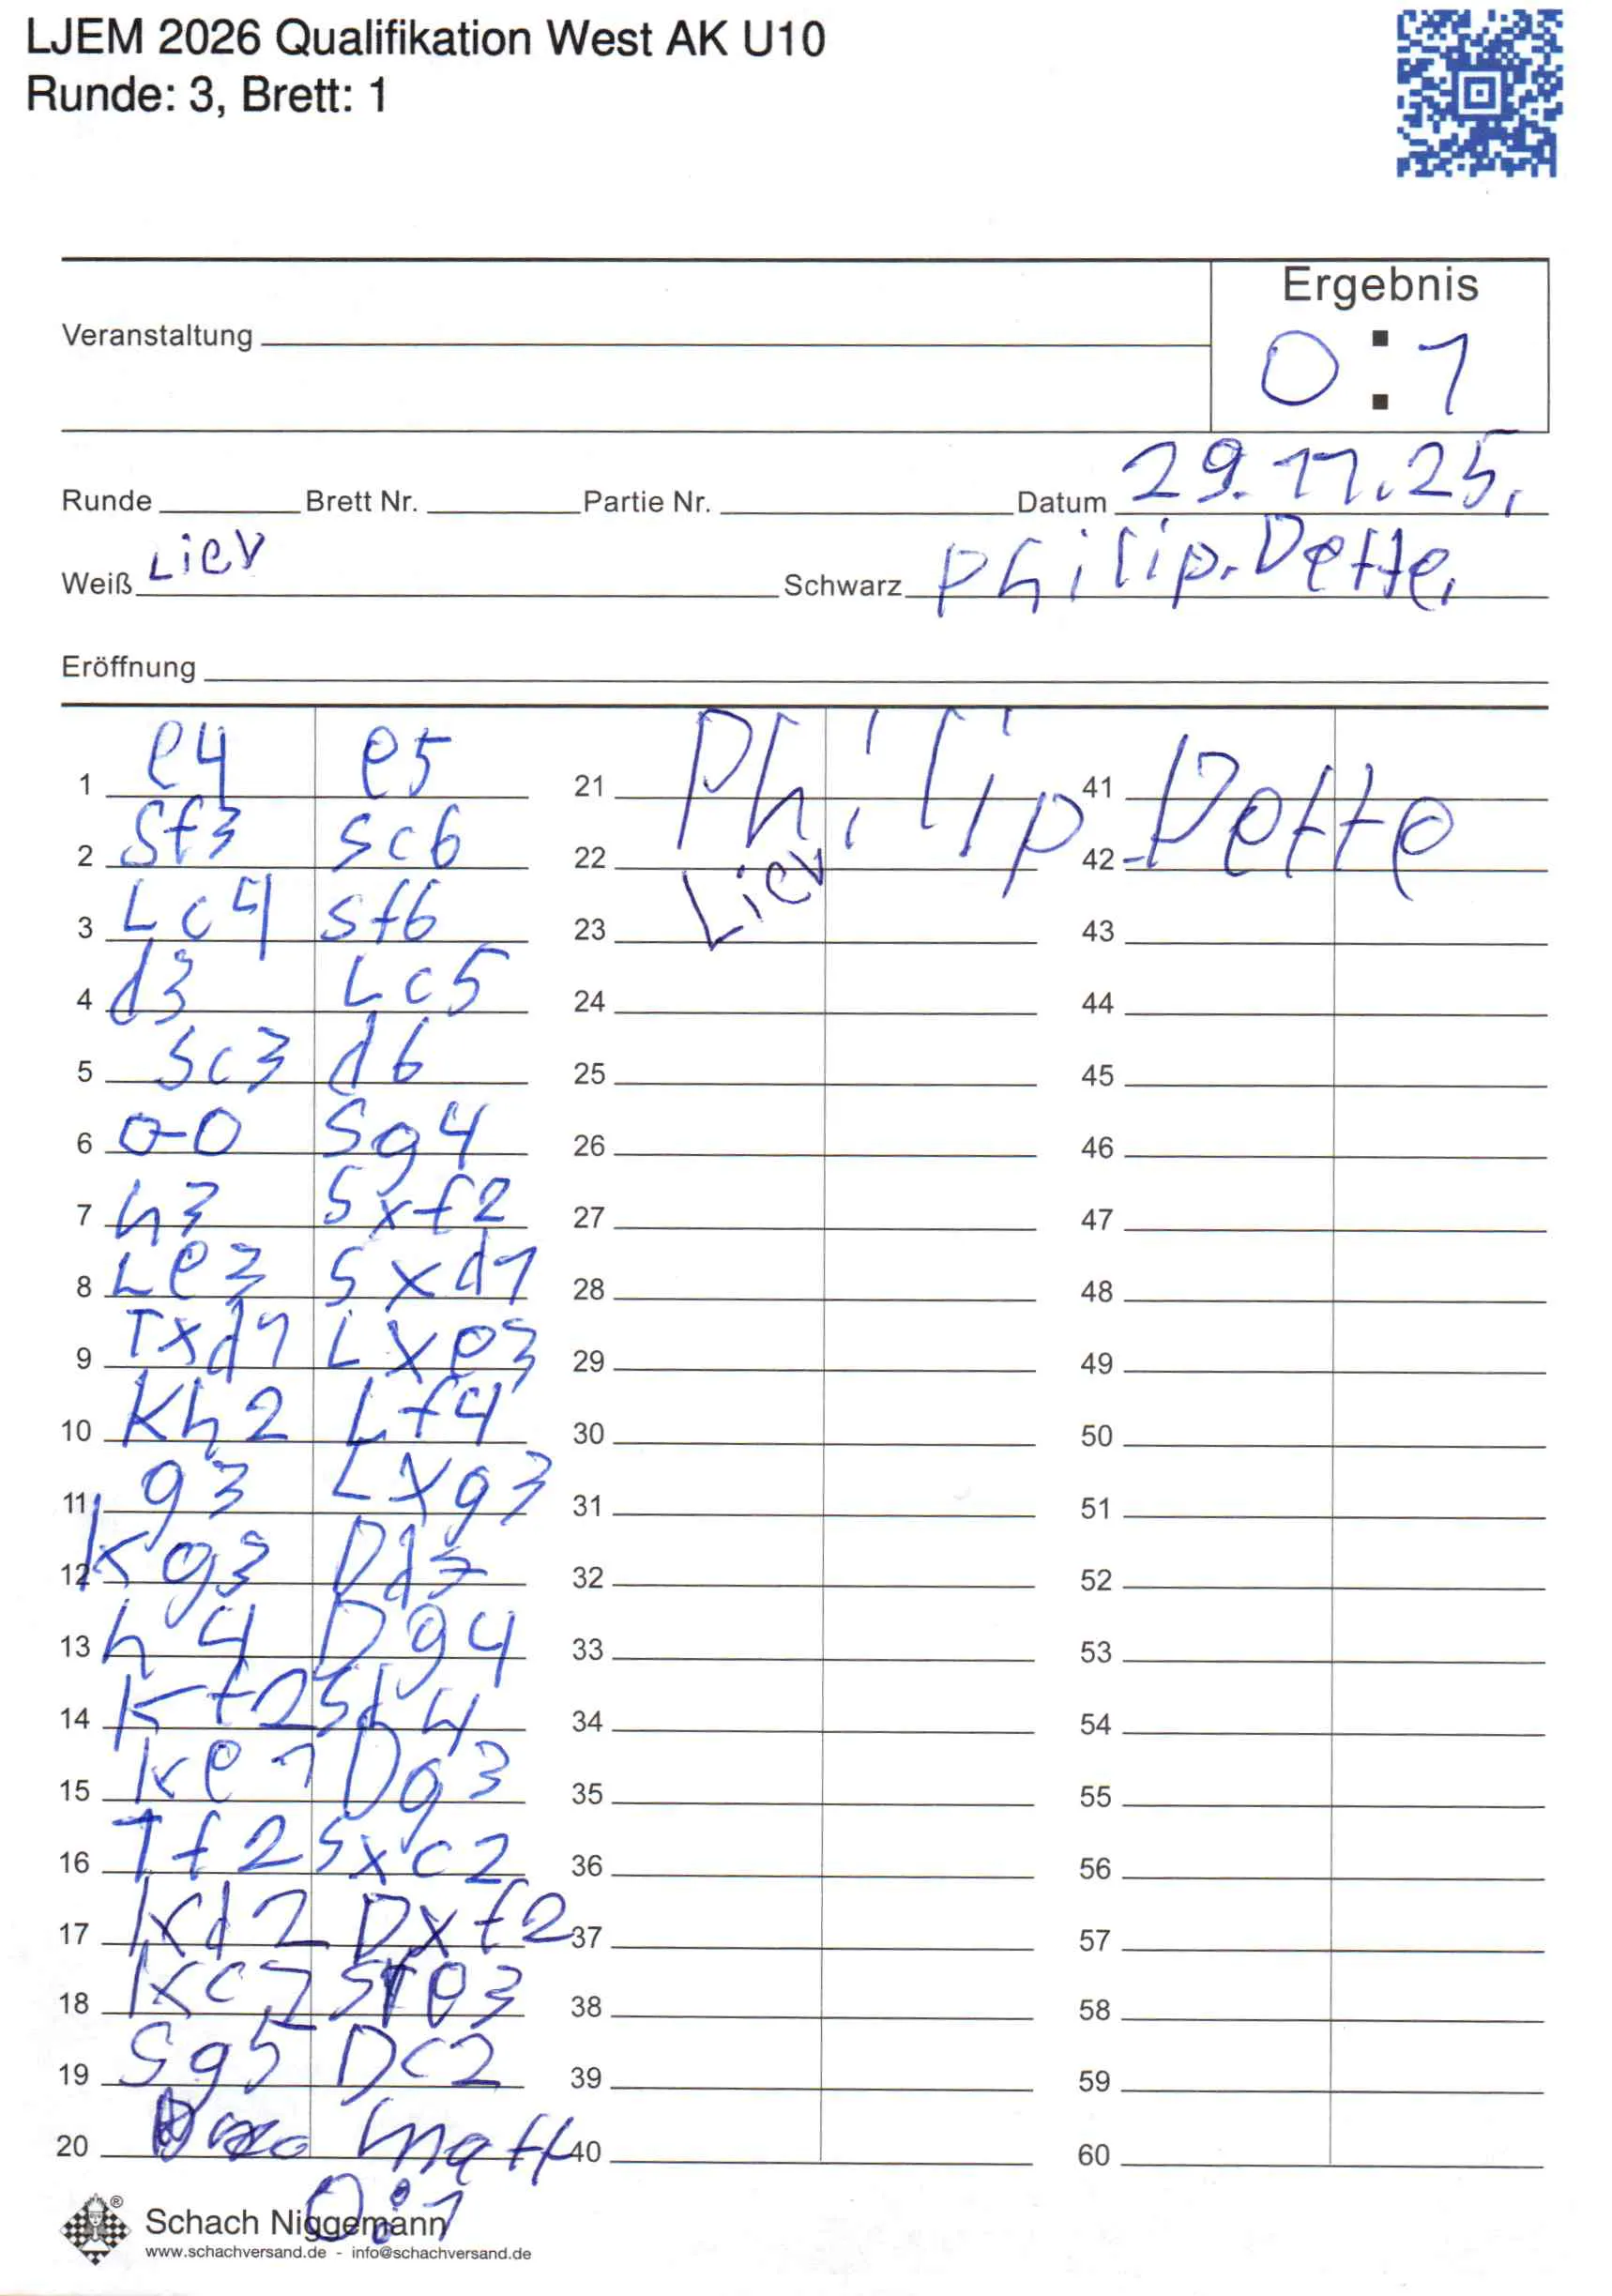 LJEM 2026 Qualifikation West AK U10
Runde: 3, Brett: 1
Ergebnis
Veranstaltung
0 : 1
Runde Brett Nr. Partie Nr. Datum 29.11.25.
Weiß Liev Schwarz Philip. Dette.
Eröffnung
1 e4 e5 21 Philip Dette 41
2 Sf3 Sc6 22 42
3 Lc4 Sf6 23 Liev 43
4 d3 Lc5 24 44
5 Sc3 d6 25 45
6 0-0 Sg4 26 46
7 h3 Sxf2 27 47
8 Le3 Sxd1 28 48
9 Txd1 Lxe3 29 49
10 Kh2 Lf4 30 50
11 g3 Lxg3 31 51
12 Kg3 Dd7 32 52
13 h4 Dg4 33 53
14 Kf2 Sd4 34 54
15 Ke1 Dg3 35 55
16 Tf2 Sxc2 36 56
17 Kd2 Dxf2 37 57
18 Kc2 Se3 38 58
19 Sg5 Dc2 39 59
20 matt 40 60
0:1
Schach Niggemann
www.schachversand.de - info@schachversand.de